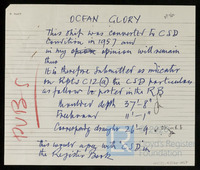 OCEAN GLORY
This ship was converted to CSD
Condition in 1957 and
in my opinion will remain
thus
It is therefore submitted as indicator
on Rpls C12(a) the CSD particulars
as follows be posted in the RB
Moulded depth 37'-8"
Freeboard 11'-1"
Corresponding draught 26'-9
This would agree with CSD in
the Register Book
PUBS